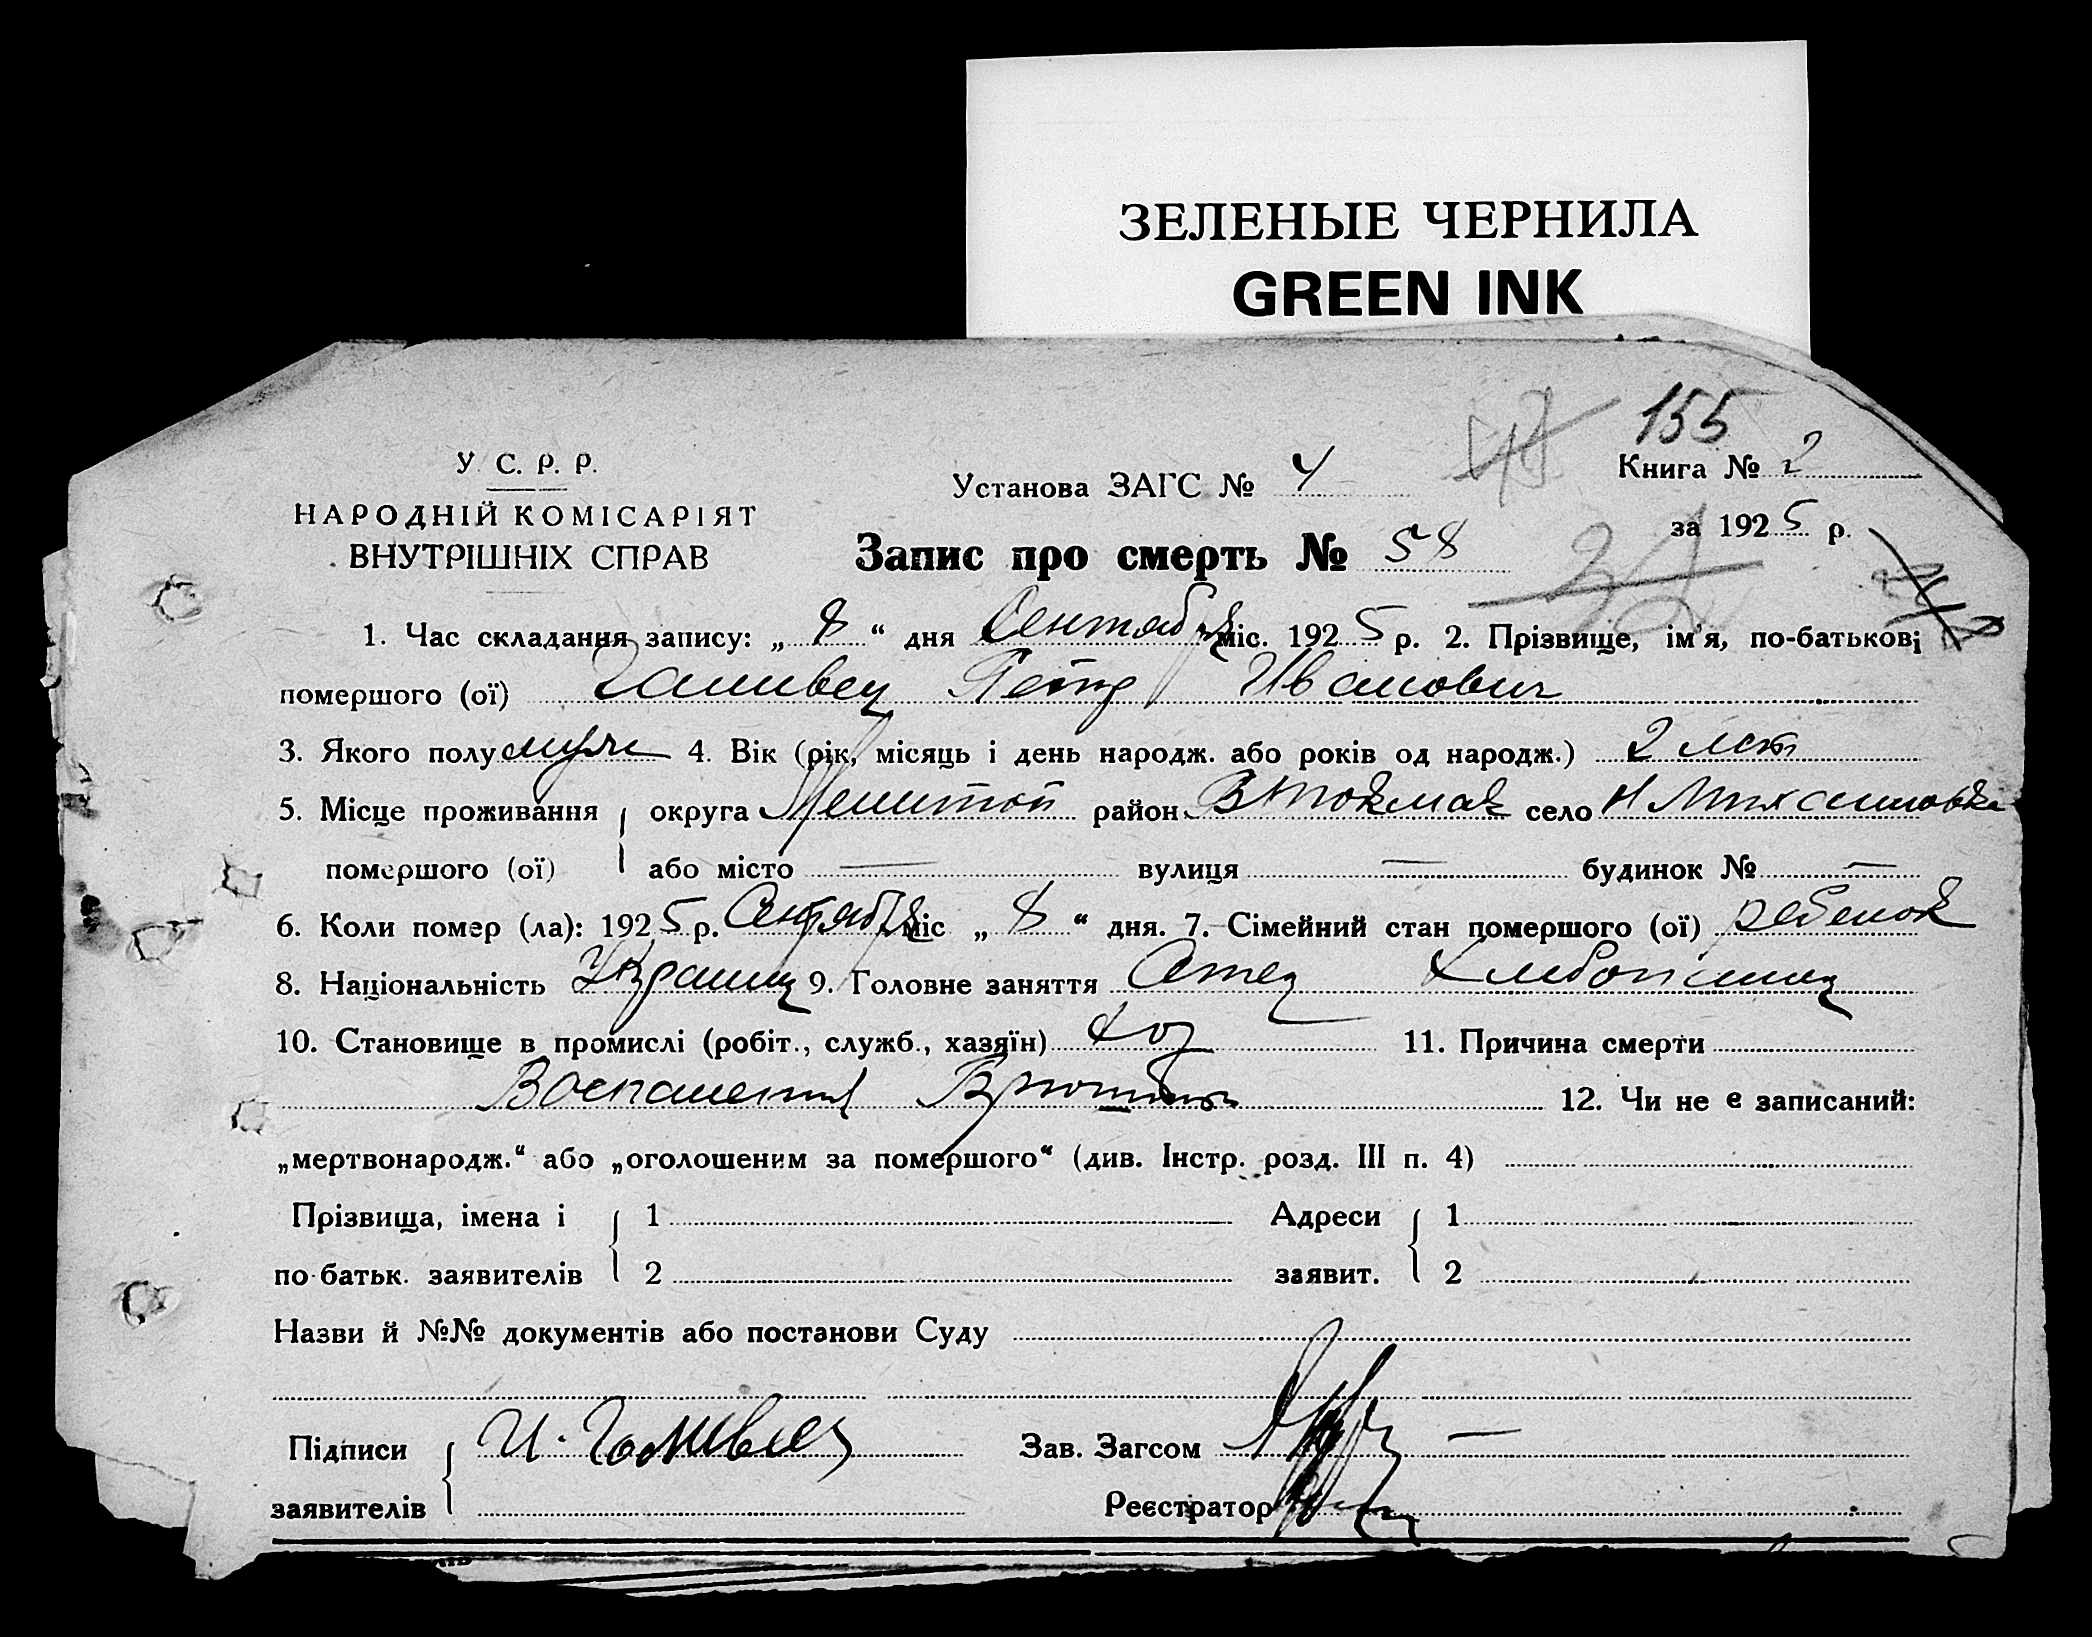 ЗЕЛЕНЫЕ ЧЕРНИЛА
GREEN INK
155
У. С. Р. Р.
НАРОДНІЙ КОМІСАРІЯТ
ВНУТРІШНІХ СПРАВ
Установа ЗАГС № 4
Книга № 2
за 1925 р.
Запис про смерть № 58
1. Час складання запису: „ 8 “ дня Сентября міс. 1925 р. 2. Прізвище, ім'я, по-батькові
помершого (ої) Петр Иванович
3. Якого полу муж 4. Вік (рік, місяць і день народж. або років од народж.) 2 лет
5. Місце проживання округа Мелитоп район ВТокмак село Н Михайловка
помершого (ої) або місто — вулиця — будинок № —
6. Коли помер (ла): 1925 р. Сентября міс „ 8 “ дня. 7. Сімейний стан помершого (ої) ребенок
8. Національність Украинец 9. Головне заняття Отец Хлебопашец
10. Становище в промислі (робіт., служб., хазяїн) хоз 11. Причина смерти
Воспаления 12. Чи не є записаний:
„мертвонародж.“ або „оголошеним за помершого“ (див. Інстр. розд. III п. 4)
Прізвища, імена і 1 Адреси 1
по-батьк. заявителів 2 заявит. 2
Назви й №№ документів або постанови Суду
Підписи И. Зав. Загсом
заявителів Реєстратор